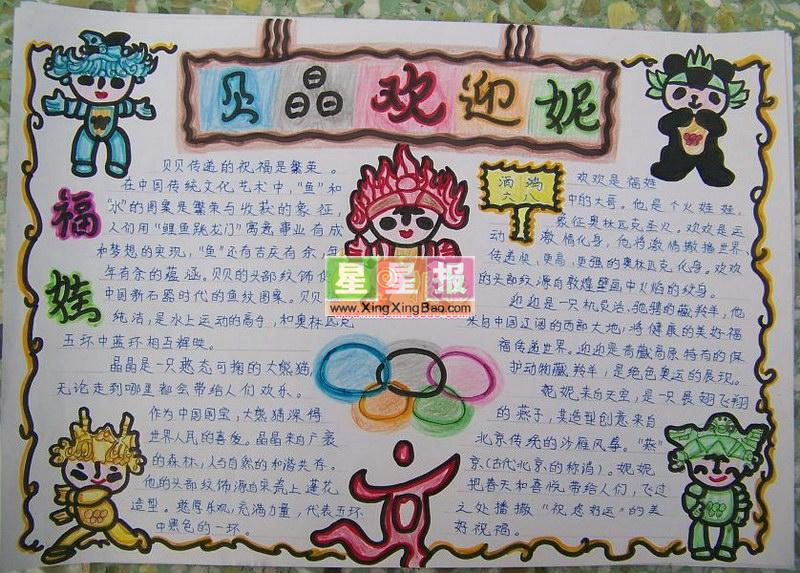 贝晶欢迎妮
福娃
贝贝传递的祝福是繁荣。
在中国传统文化艺术中，“鱼”和
“水”的图案是繁荣与收获的象征，
人们用“鲤鱼跳龙门”寓意事业有成
和梦想的实现，“鱼”还有吉庆有余，年
年有余的蕴涵。贝贝的头部纹饰使
中国新石器时代的鱼纹图案。贝贝
纯洁，是水上运动的高手，和奥林匹克
五环中蓝环相互辉映。
晶晶是一只憨态可掬的大熊猫，
无论走到哪里都会带给人们欢乐。
作为中国国宝，大熊猫深得
世界人民的喜爱。晶晶来自广袤
的森林，人与自然的和谐共存。
他的头部纹饰源自宋瓷上莲花
造型。憨厚乐观，充满力量，代表五环
中黑色的一环。
星星报
www.XingXingBao.com
洒鸿
六八
欢欢是福娃
中的大哥。他是个火娃娃，
象征奥林匹克圣火。欢欢是运
动激情化身，他将激情撒播世界，
传递快，更高，更强的奥林匹克化身。欢欢
的头部纹源自敦煌壁画中火焰的纹身。
迎迎是一只机灵活、驰骋的藏羚羊，他
来自中国辽阔的西部大地，将健康的美好福
福传递世界。迎迎是青藏高原特有的保
护动物藏羚羊，是绿色奥运的展现。
妮妮来自天空，是一只展翅飞翔
的燕子，其造型创意来自
北京传统的沙雁风筝。“燕”
京(古代北京的称谓)。妮妮
把春天和喜悦带给人们，飞过
之处播撒“祝您好运”的美
好祝福。